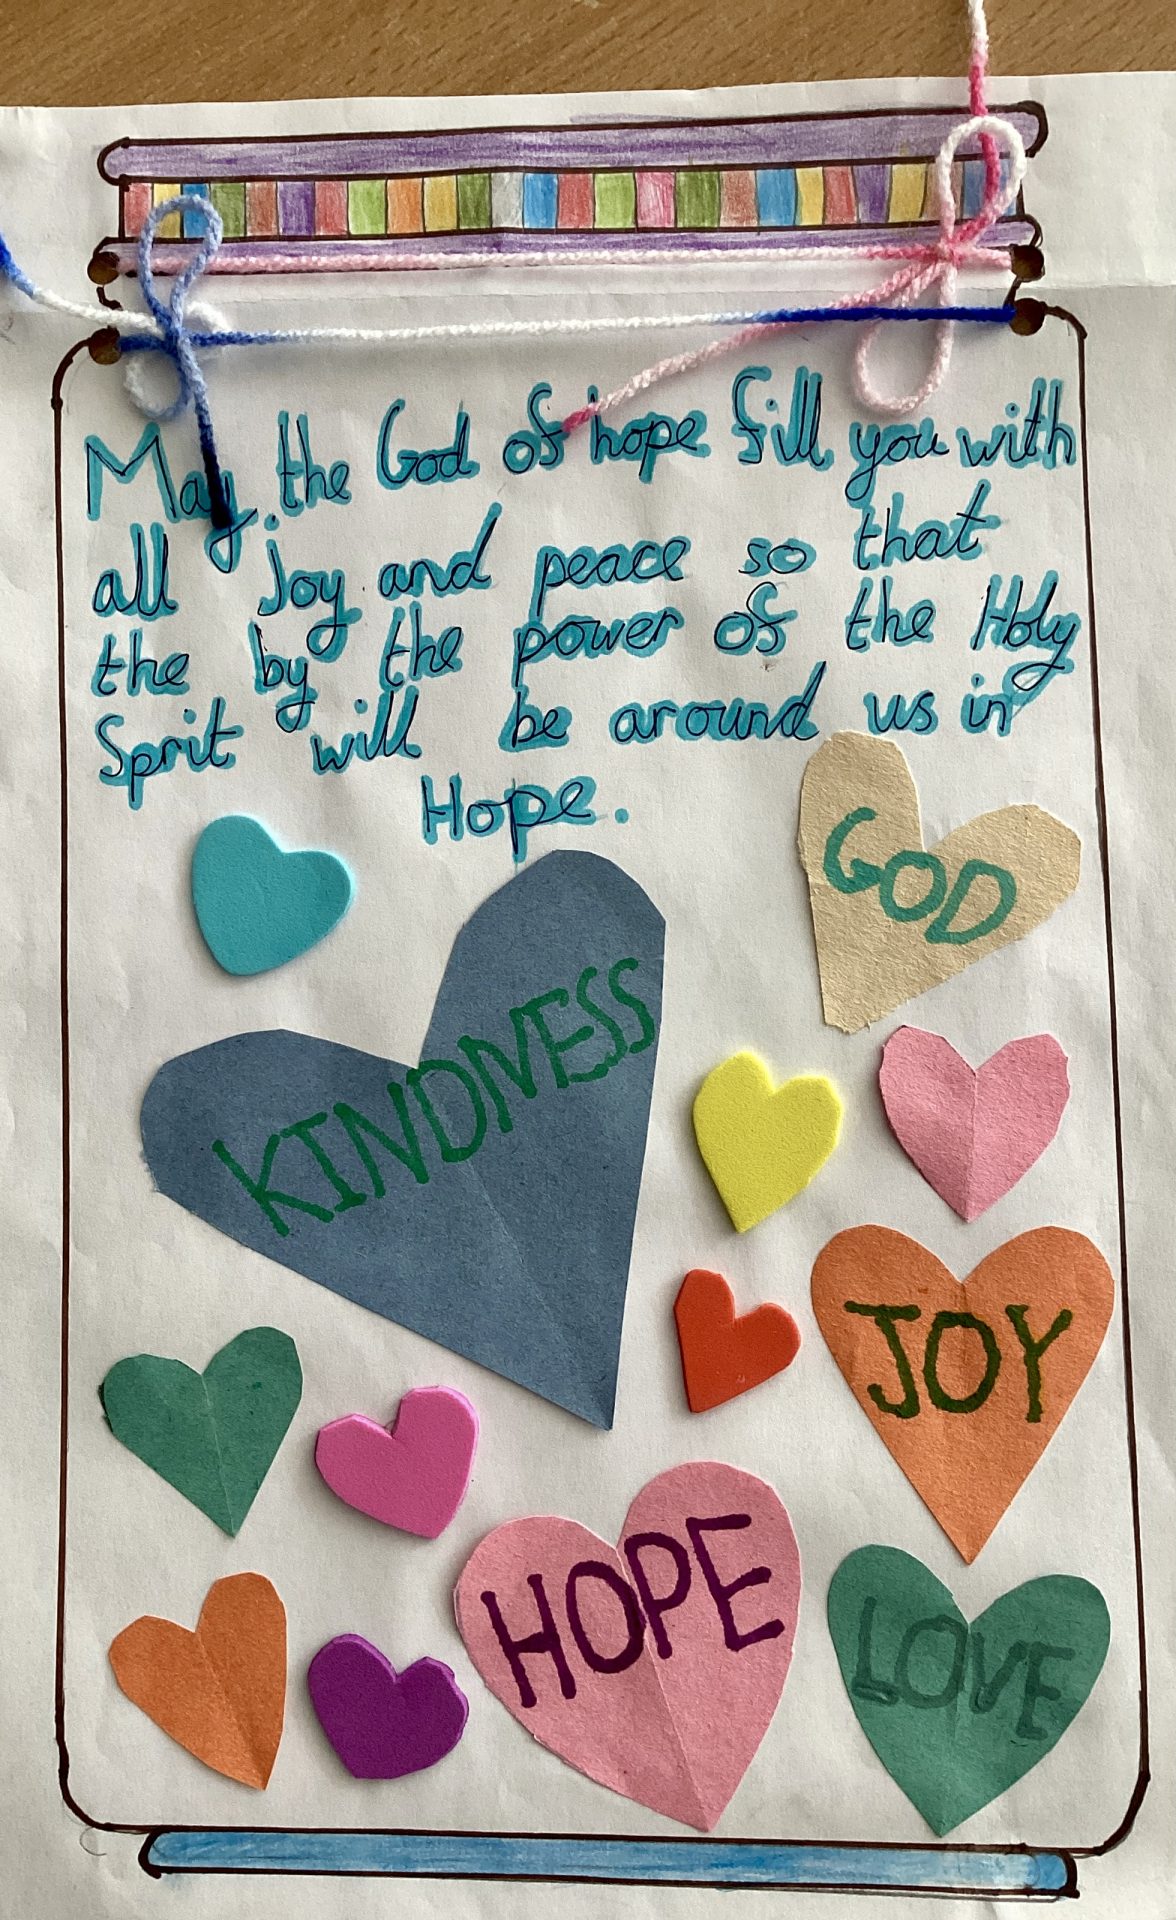 May the God of hope fill you with
all joy and peace so that
the by the power of the Holy
Sprit will be around us in
Hope.
GOD
KINDNESS
JOY
HOPE
LOVE